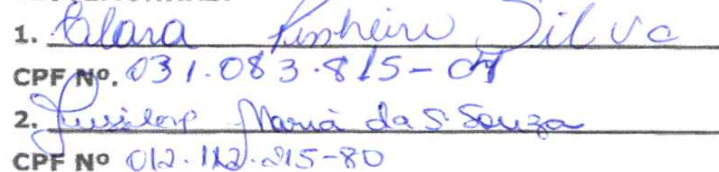 1. Clara Pinheiro Silva
CPF Nº. 031.083.815-07
2. Maria da S. Souza
CPF Nº 012.112.215-80